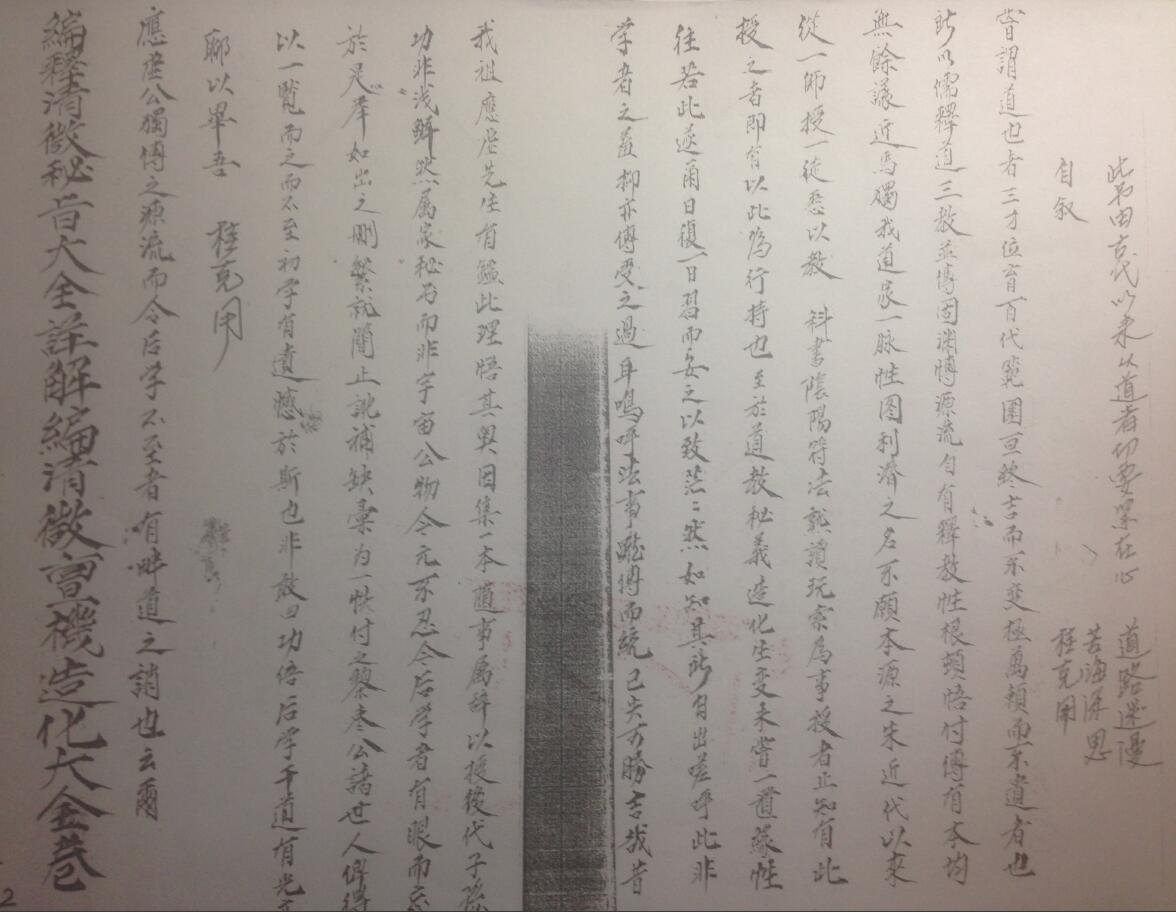 此書由古代以来以道者切要墨在心
道路遥漫
苦海深思
程克用
自叙
嘗謂道也者三才位育百代範圍亘終古而不变極萬類而不遺者也
所以儒釋道三教並傳固渊博源流自有釋教性根頓悟付傳有本均
無餘議近焉獨我道家一脉性图利濟之名不顧本源之失近代以來
從一師授一徒悉以教 科書陰陽符法就讀玩索為事授者止知有此
授之者即旨以此為行持也至於道教秘義造化生变未嘗一道蘇性
往若此遂爾日復一日習而安之以致茫〻然如知其所自出嗟呼此非
学者之羞抑亦傳受之過耳嗚呼法事雖傳而統已失可勝言哉昔
我祖應産先生有鑑此理悟其奥因集一本随事属辞以授後代子孫
功非浅鮮然属家秘书而非宇宙公物令元不忍令后学者有眼而忘
於是摩如出之刪繁就簡止訛補缺彙为一帙付之黎枣公諸世人俾得
以一覧而之而不至初学有遺憾於斯也非敢曰功倍后学于道有光
聊以畢吾 程克用
應産公獨傳之源流而令后学不至者有畔道之誚也云爾
編釋清微秘旨大全詳解編清微亶機造化大全卷
2